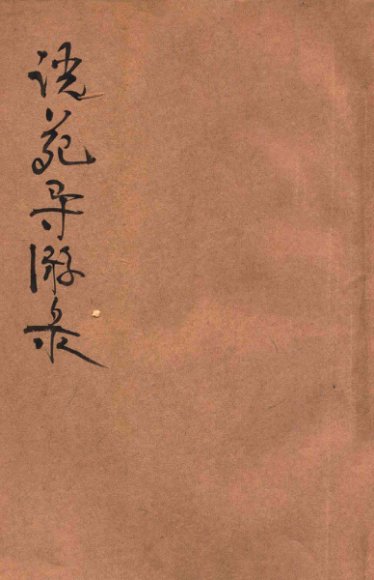 说苑导游录